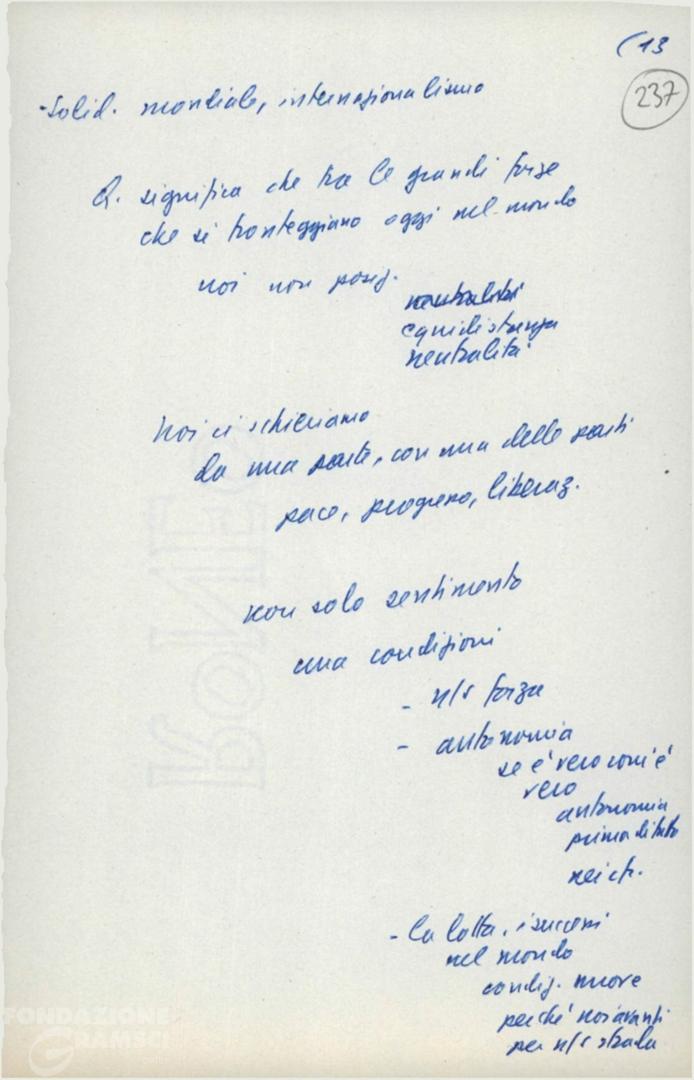 ( 13
237
- Solid. mondiale, internazionalismo
Q. significa che tra le grandi forze
che si fronteggiano oggi nel mondo
noi non poss.
neutralità
equidistanza
neutralità
Noi ci schieriamo
da una parte, con una delle parti
pace, progresso, liberaz.
non solo sentimento
una condizioni
- n/s forza
- autonomia
se è vero com'è
vero
autonomia
prima di tutto
nei
- la lotta, i successi
nel mondo
condiz. nuove
perché noi avanti
per n/s strada
FONDAZIONE
GRAMSCI